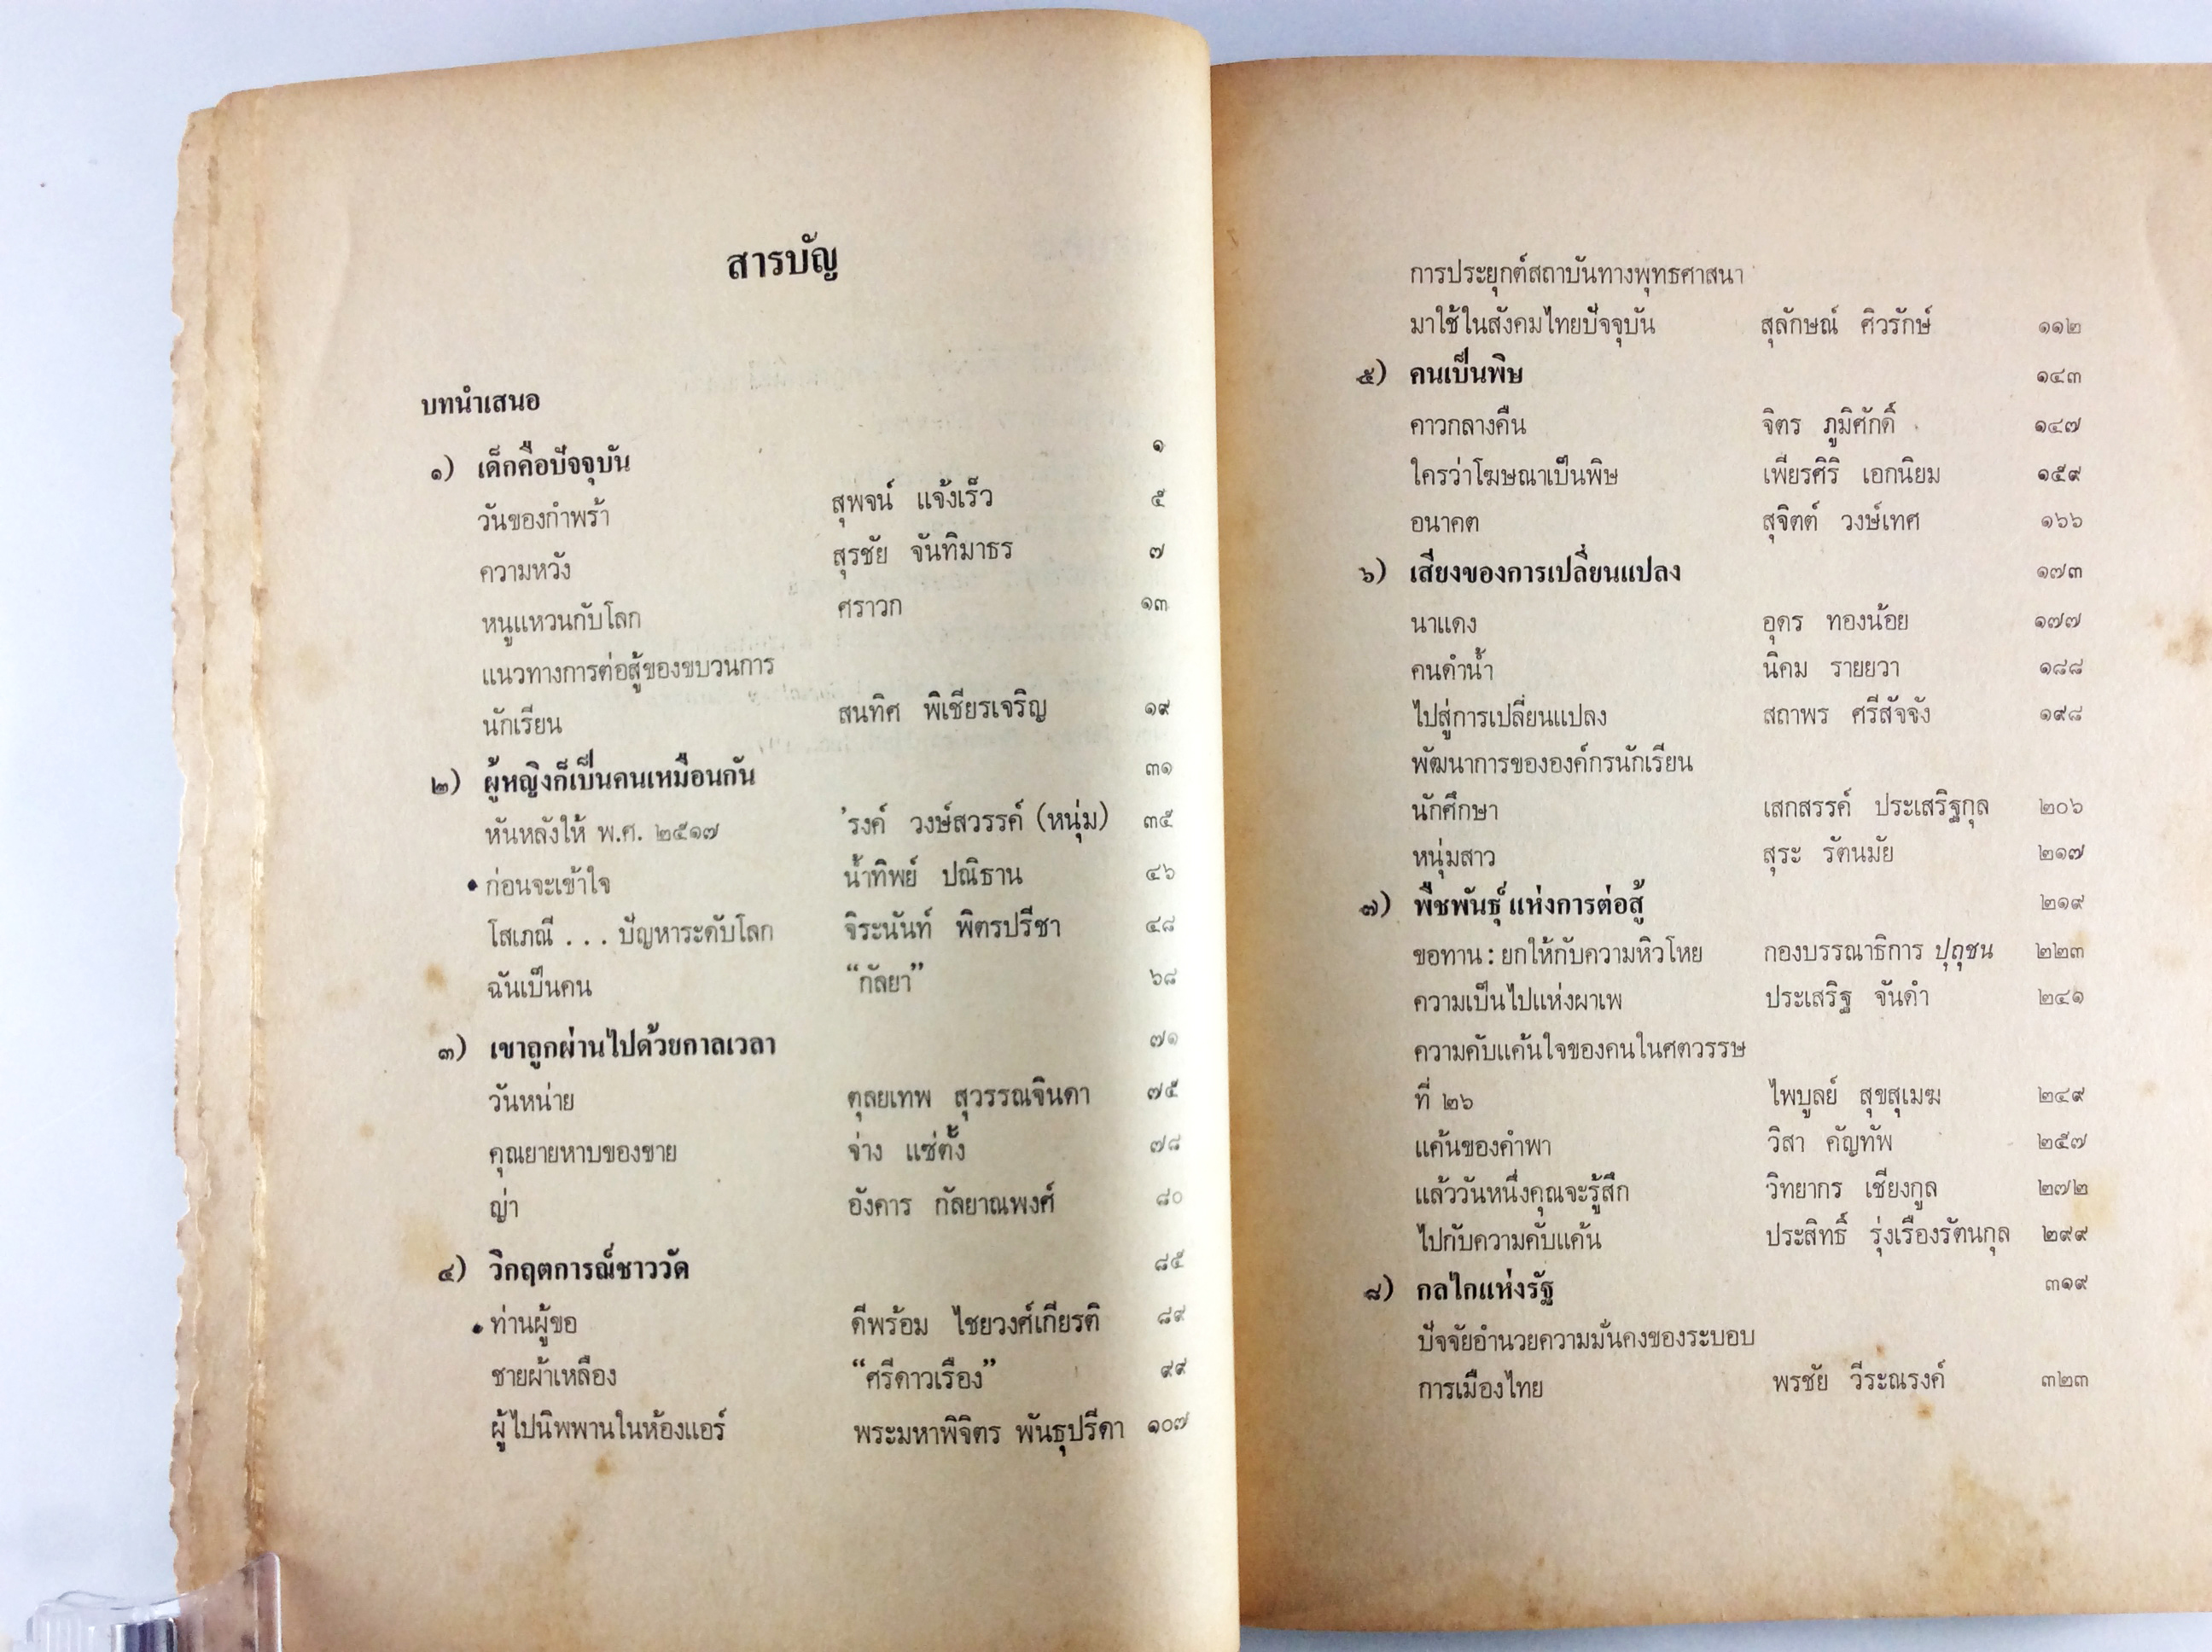 สารบัญ
บทนำเสนอ
๑) เด็กคือปัจจุบัน ๑
วันของกำพร้า สุพจน์ แจ้งเร็ว ๕
ความหวัง สุรชัย จันทิมาธร ๗
หนูแหวนกับโลก ศราวก ๑๓
แนวทางการต่อสู้ของขบวนการ
นักเรียน สนทิศ พิเชียรเจริญ ๑๙
๒) ผู้หญิงก็เป็นคนเหมือนกัน ๓๑
หันหลังให้ พ.ศ. ๒๕๑๗ 'รงค์ วงษ์สวรรค์ (หนุ่ม) ๓๕
• ก่อนจะเข้าใจ น้ำทิพย์ ปณิธาน ๔๖
โสเภณี . . . ปัญหาระดับโลก จิระนันท์ พิตรปรีชา ๔๘
ฉันเป็นคน “กัลยา” ๖๘
๓) เขาถูกผ่านไปด้วยกาลเวลา ๗๑
วันหน่าย ตุลยเทพ สุวรรณจินดา ๗๕
คุณยายหาบของขาย จ่าง แซ่ตั้ง ๗๘
ญ่า อังคาร กัลยาณพงศ์ ๘๐
๔) วิกฤตการณ์ชาววัด ๘๕
• ท่านผู้ขอ ดีพร้อม ไชยวงศ์เกียรติ ๘๙
ชายผ้าเหลือง “ศรีดาวเรือง” ๙๙
ผู้ไปนิพพานในห้องแอร์ พระมหาพิจิตร พันธุปรีดา ๑๐๗
การประยุกต์สถาบันทางพุทธศาสนา
มาใช้ในสังคมไทยปัจจุบัน สุลักษณ์ ศิวรักษ์ ๑๑๒
๕) คนเป็นพิษ ๑๔๓
คาวกลางคืน จิตร ภูมิศักดิ์ ๑๔๗
ใครว่าโฆษณาเป็นพิษ เพียรศิริ เอกนิยม ๑๕๙
อนาคต สุจิตต์ วงษ์เทศ ๑๖๖
๖) เสียงของการเปลี่ยนแปลง ๑๗๓
นาแดง อุดร ทองน้อย ๑๗๗
คนดำน้ำ นิคม รายยวา ๑๘๘
ไปสู่การเปลี่ยนแปลง สถาพร ศรีสัจจัง ๑๙๘
พัฒนาการขององค์กรนักเรียน
นักศึกษา เสกสรรค์ ประเสริฐกุล ๒๐๖
หนุ่มสาว สุระ รัตนมัย ๒๑๗
๗) พืชพันธุ์ แห่งการต่อสู้ ๒๑๙
ขอทาน : ยกให้กับความหิวโหย กองบรรณาธิการ ปุถุชน ๒๒๓
ความเป็นไปแห่งผาเพ ประเสริฐ จันดำ ๒๔๑
ความคับแค้นใจของคนในศตวรรษ
ที่ ๒๖ ไพบูลย์ สุขสุเมฆ ๒๔๙
แค้นของคำพา วิสา คัญทัพ ๒๕๗
แล้ววันหนึ่งคุณจะรู้สึก วิทยากร เชียงกูล ๒๗๒
ไปกับความคับแค้น ประสิทธิ์ รุ่งเรืองรัตนกุล ๒๙๙
๘) กลไกแห่งรัฐ ๓๑๙
ปัจจัยอำนวยความมั่นคงของระบอบ
การเมืองไทย พรชัย วีระณรงค์ ๓๒๓